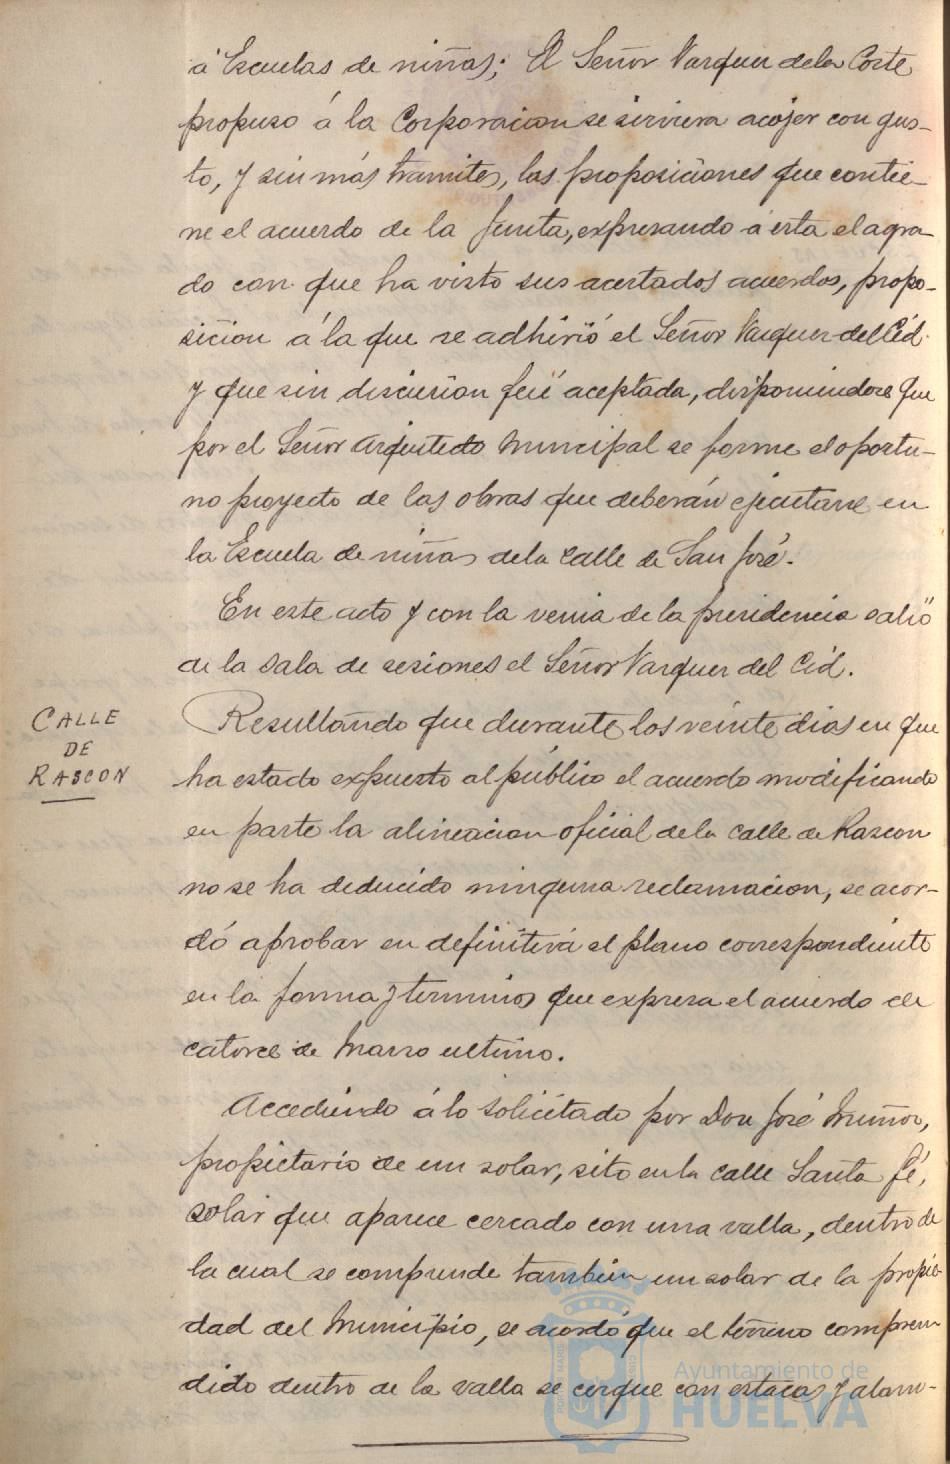 á Escuelas de niñas; El Señor Vazquez de la Corte
propuso á la Corporacion se sirviera acojer con gus-
to, y sin más tramites, las proposiciones que contie-
ne el acuerdo de la Junta, expresando á esta el agra-
do con que ha visto sus acertados acuerdos, propo-
sicion á la que se adhirió el Señor Vazquez del Cid
y que sin discusion fué aceptada, disponiendose que
por el Señor Arquitecto Municipal se forme el oportu-
no proyecto de las obras que deberán ejecutarse en
la Escuela de niñas de la calle de San José.
En este acto y con la venia de la presidencia salió
de la sala de sesiones el Señor Vazquez del Cid.
CALLE
DE
RASCON
Resultando que durante los veinte dias en que
ha estado expuesto al público el acuerdo modificando
en parte la alineacion oficial de la calle de Rascon
no se ha deducido ninguna reclamacion, se acor-
dó aprobar en definitiva el plano correspondiente
en la forma y terminos que expresa el acuerdo de
catorce de Marzo ultimo.
Accediendo á lo solicitado por Don José Muñoz,
propietario de un solar, sito en la calle Santa Fé,
solar que aparece cercado con una valla, dentro de
la cual se comprende tambien un solar de la propie-
dad del Municipio, se acordó que el terreno compren-
dido dentro de la valla se cerque con estacas y alam-
Ayuntamiento de
HUELVA